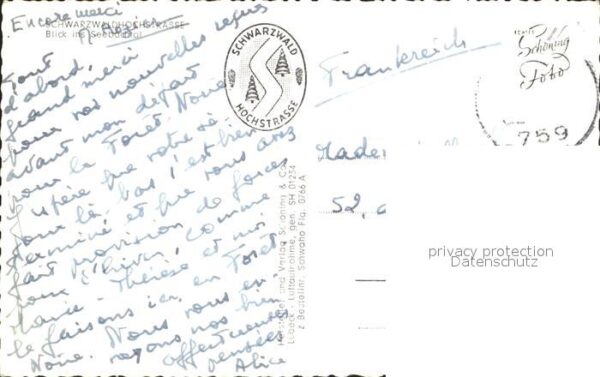 Encore merci
SCHWARZWALDHOCHSTRASSE
Blick ins Seebachtal
Tout
d'abord,
grand merci
pour vos nouvelles reçues
avant mon départ
pour la Forêt Noire
J'espère que votre
là-bas s'est bien
terminé et que vous avez
fait provision de forces
pour l'hiver, comme
Marie-Thérèse et moi
le faisons ici, en Forêt
Noire. Nous vous en
voyons nos bien
affectueuses
pensées
Alice
SCHWARZWALD
HOCHSTRASSE
Hersteller und Verlag Schöning & Co.
Lübeck - Luftaufnahme, gen. SH 01234
Z Bestellnr. Schwaho Flg. 0766 A
Schöning
Foto
759
Frankreich
52,
privacy protection
Datenschutz